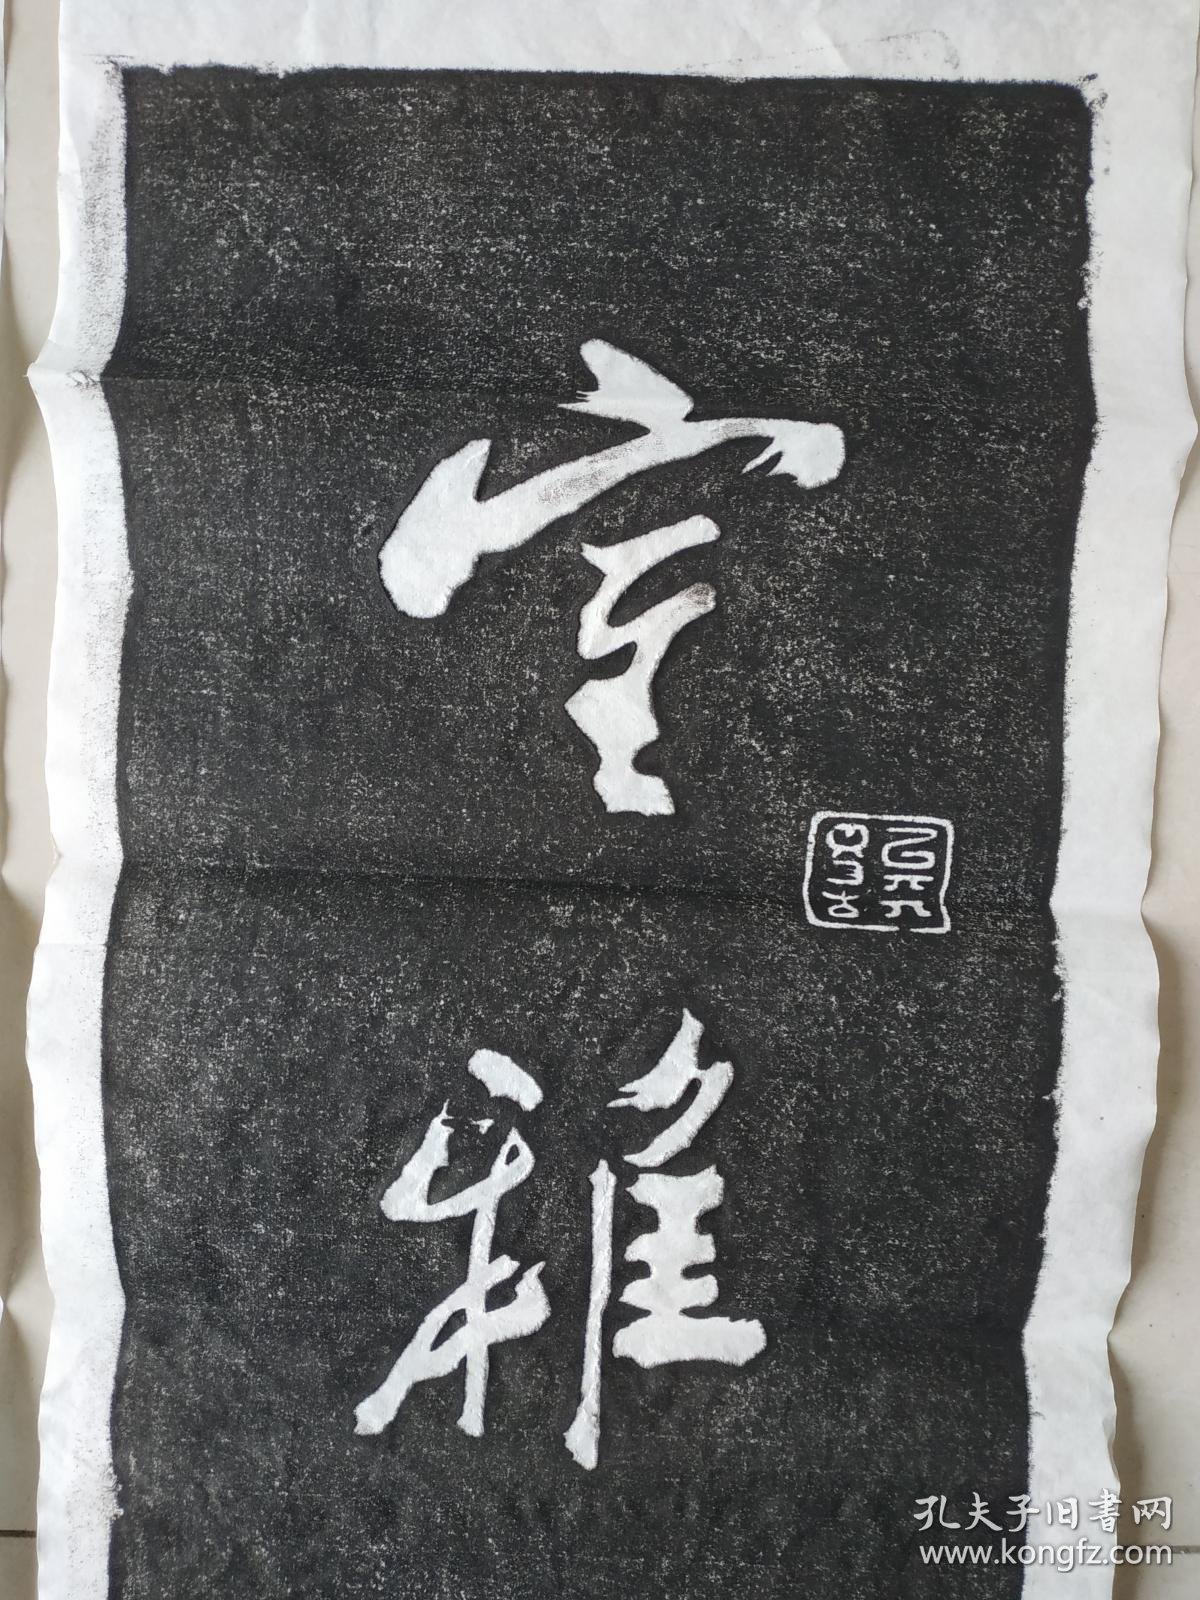 室
雅
孔夫子旧書网
www.kongfz.com